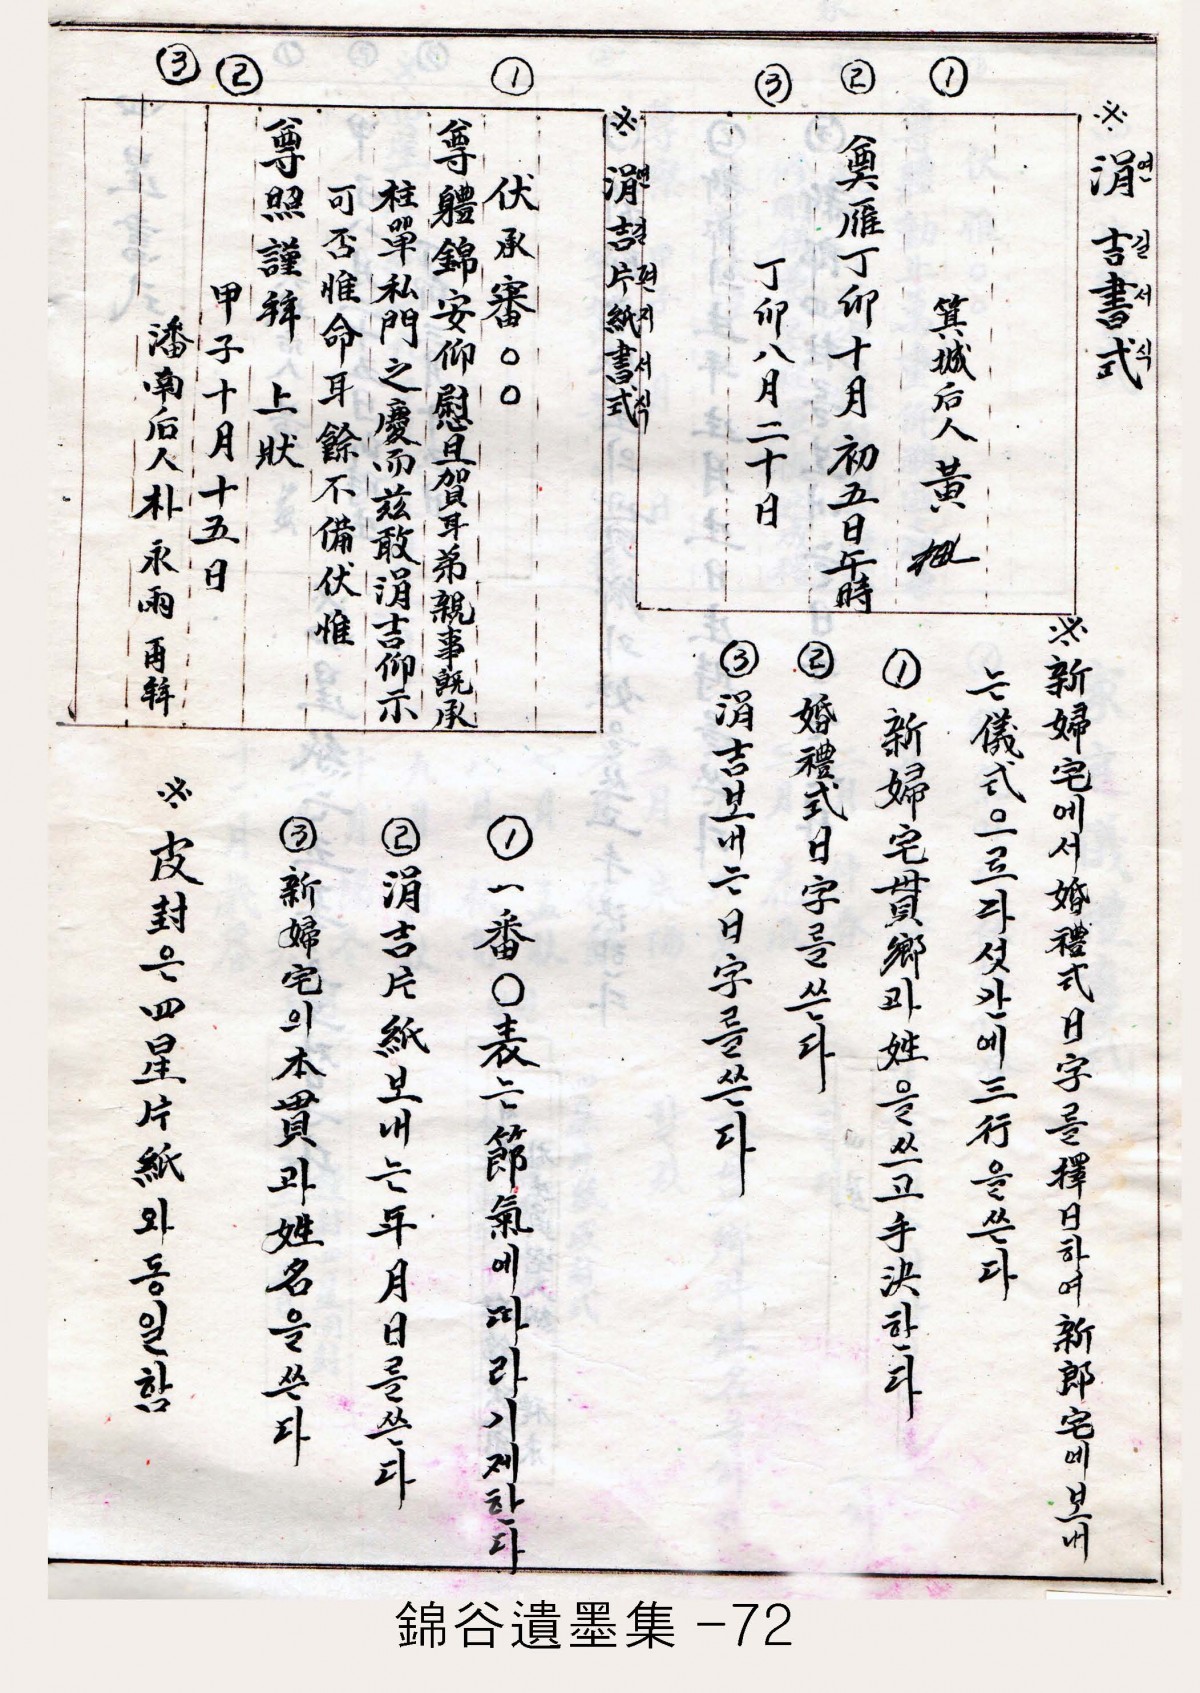 ※ 涓吉書式
연길서식
①
②
③
箕城后人 黃
奠雁丁卯十月初五日午時
丁卯八月二十日
※ 新婦宅에서 婚禮式日字를 擇日하여 新郎宅에 보내
는 儀式으로 다섯칸에 三行을 쓴다
① 新婦宅貫鄉과 姓을 쓰고 手決한다
② 婚禮式日字를 쓴다
③ 涓吉보내는 日字를 쓴다
※ 涓吉片紙書式
연길편지서식
①
②
③
伏承審○○
尊體錦安仰慰且賀耳弟親事旣承
柱單私門之慶而玆敢涓吉仰示
可否惟命耳餘不備伏惟
尊照謹拜 上狀
甲子十月十五日
潘南后人朴永雨再拜
① 一番○表는 節氣에 따라 기제한다
② 涓吉片紙보내는 年月日를 쓴다
③ 新婦宅의 本貫과 姓名을 쓴다
※ 皮封은 四星片紙와 동일함
錦谷遺墨集 -72